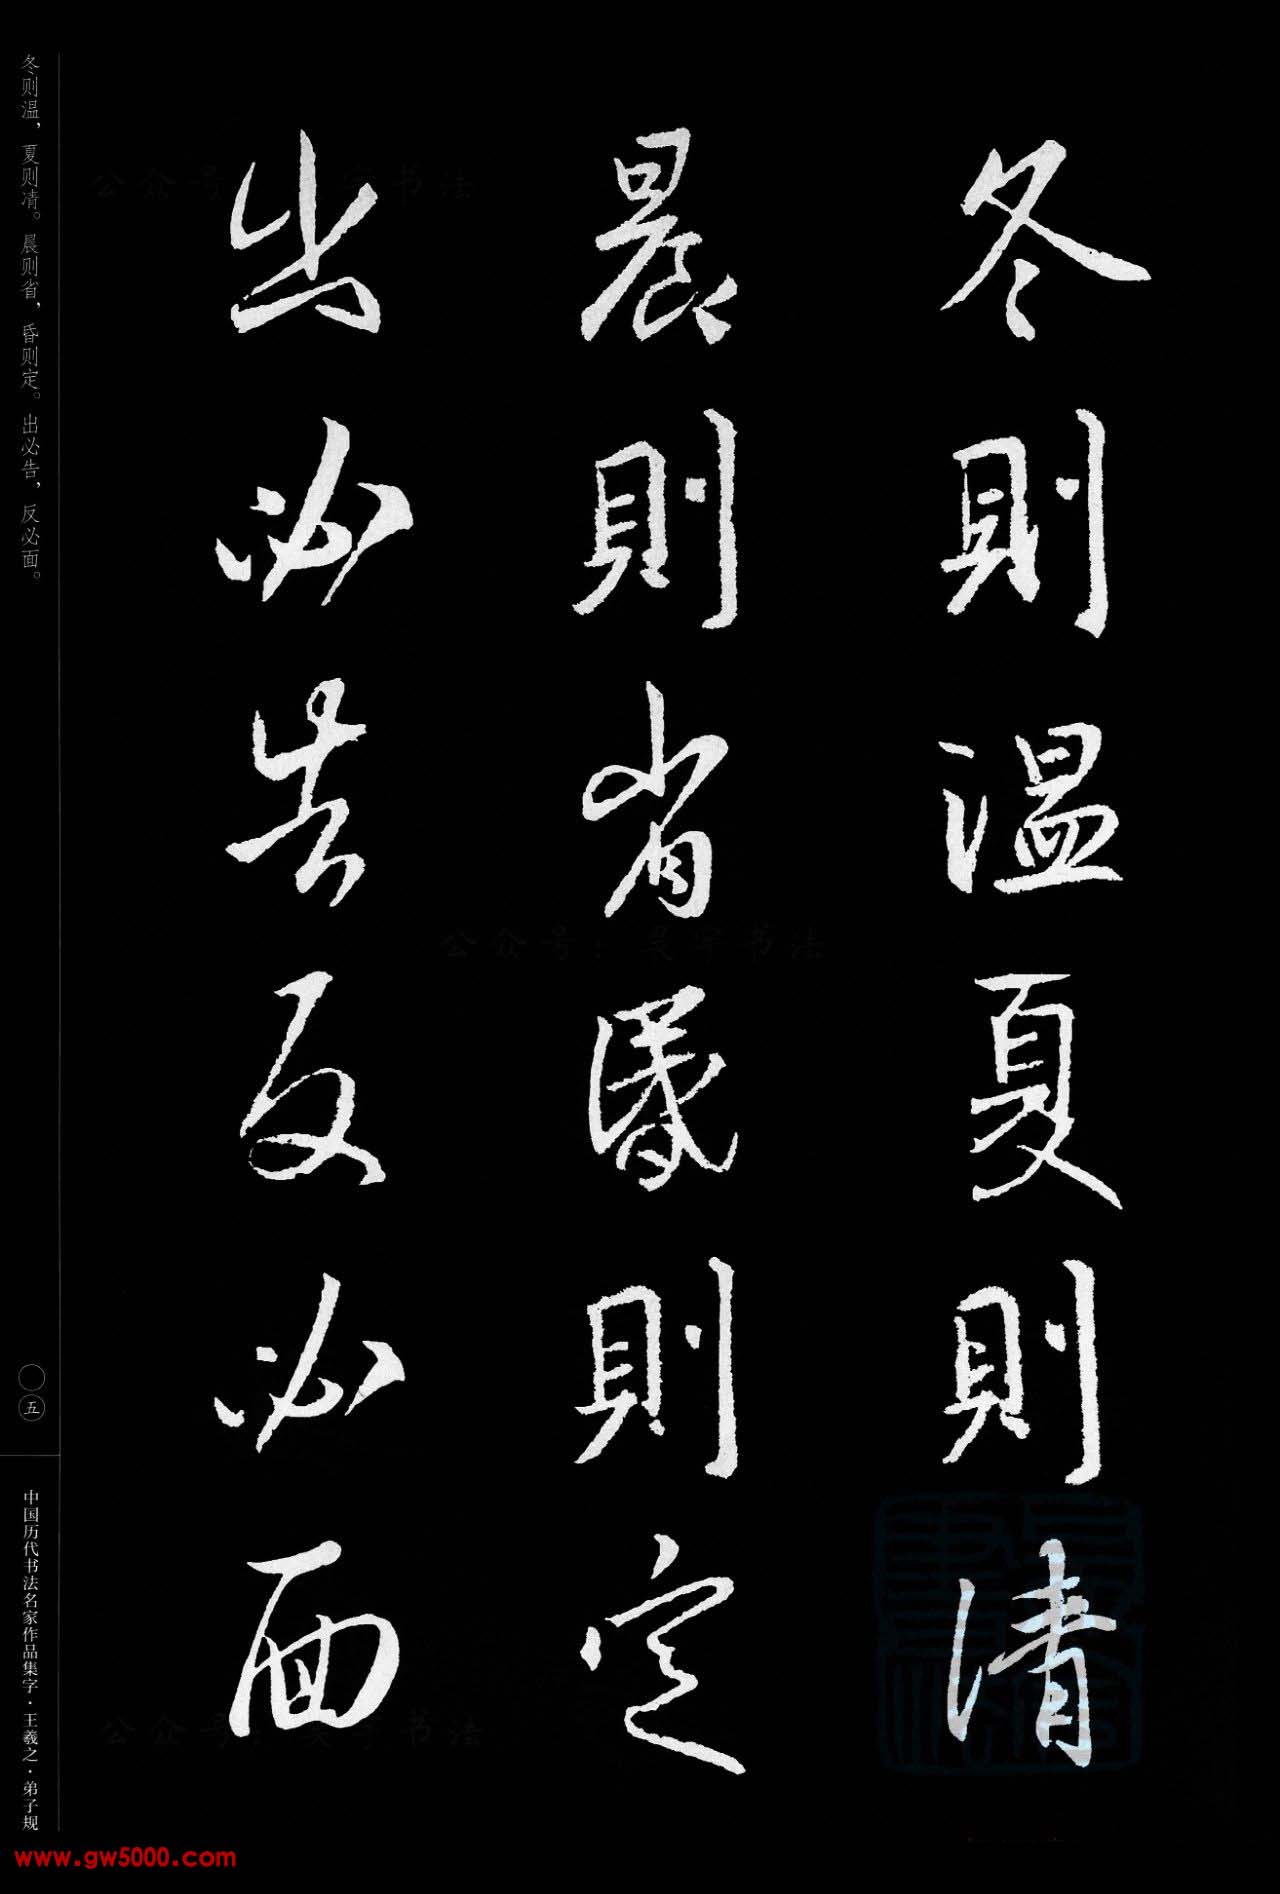 冬則溫夏則清
晨則省昏則定
出必告反必面
冬则温，夏则凊。晨则省，昏则定。出必告，反必面。
〇五
中国历代书法名家作品集字·王羲之·弟子规
公众号：昊宇书法
www.gw5000.com